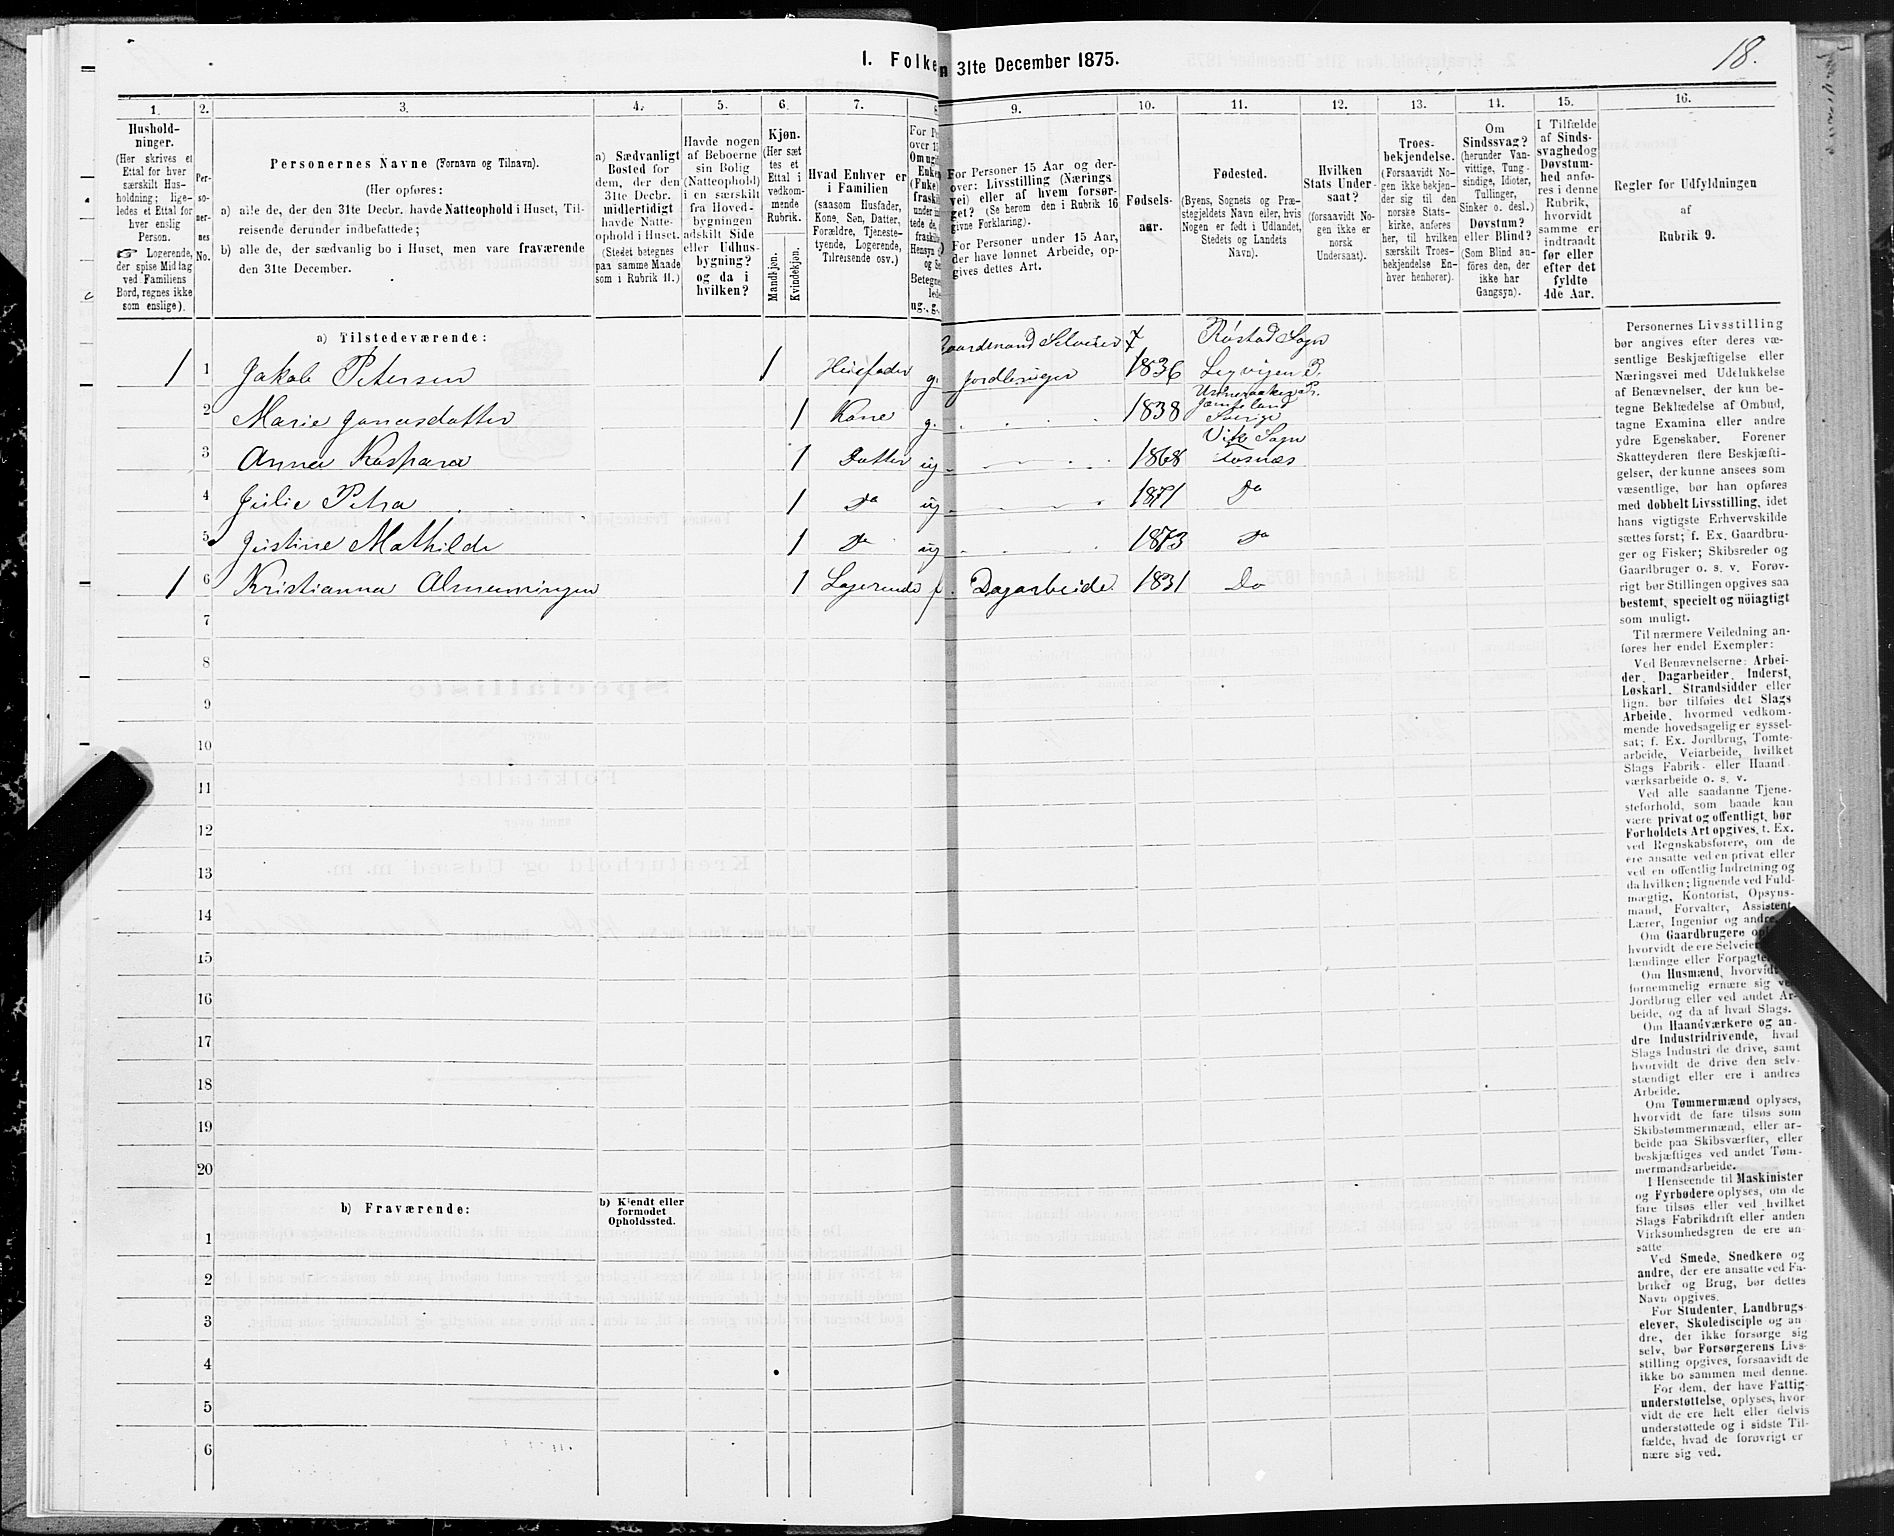 1. Folke n 31te December 1875.
18.
1. 2. 3. 4. 5. 6. 7. 8 9. 10. 11. 12. 13. 14. 15. 16.
Hushold-
ninger.
(Her skrives et
Ettal for hver
særskilt Hus-
holdning; lige-
ledes et Ettal for
hver enslig
Person.
☞ Logerende,
der spise Middag
ved Familiens
Bord, regnes ikke
som enslige).
Per-
so-
ner-
nes
No.
Personernes Navne (Fornavn og Tilnavn).
(Her opføres:
a) alle de, der den 31te Decbr. havde Natteophold i Huset, Til-
reisende derunder indbefattede;
b) alle de, der sædvanlig bo i Huset, men vare fraværende
den 31te December.
a) Sædvanligt
Bosted for
dem, der den
31te Decbr.
midlertidigt
havde Natte-
ophold i Huset.
(Stedet betegnes
paa samme Maade
som i Rubrik 11.)
Havde nogen
af Beboerne
sin Bolig
(Natteophold)
i en særskilt
fra Hoved-
bygningen
adskilt Side
eller Udhus-
bygning?
og da i
hvilken?
Kjøn.
(Her sæt
tes et
Ettal i
vedkom-
mende
Rubrik.
Mandkjøn.
Kvindekjøn.
Hvad Enhver er
i Familien
(saasom Husfader,
Kone, Søn, Datter,
Forældre, Tjeneste-
tyende, Logerende,
Tilreisende osv.)
For P
over 1
Om ugif
Enke
(Fuke)
fraskil
under in
tede de,
fraskil
Hensyn
og S
Betegne
lede
ug., g.,
For Personer 15 Aar og der-
over: Livsstilling (Nærings
vei) eller af hvem forsør-
get? (Se herom den i Rubrik 16
givne Forklaring).
For Personer under 15 Aar,
der have lønnet Arbeide, op-
gives dettes Art.
Fødsels-
aar.
Fødested.
(Byens, Sognets og Præ-
stegjeldets Navn eller, hvis
Nogen er født i Udlandet,
Stedets og Landets
Navn).
Hvilken
Stats Under-
saat?
(forsaavidt No-
gen ikke er
norsk
Undersaat).
Troes-
bekjendelse.
(Forsaavidt No-
gen ikke bekjen-
der sig til den
norske Stats-
kirke, anføres
her, til hvilken
særskilt Troes-
bekjendelse En-
hver henhører).
Om
Sindssvag?
(herunder Van-
vittige, Tung-
sindige, Idioter,
Tullinger,
Sinker o. desl.)
Døvstum?
eller Blind?
(Som Blind an-
føres den, der
ikke har
Gangsyn).
I Tilfælde
af Sinds-
svaghed og
Døvstum-
hed anfø-
res i denne
Rubrik,
hvorvidt
samme er
indtraadt
før eller
efter det
fyldte
4de Aar.
Regler for Udfyldningen
af
Rubrik 9.
a) Tilstedeværende:
Gaardmand Selveier Røstad Sogn
1 1 Jakob Petersen 1 Husfader g. Jordbruger 1836 Legvigen P.
2 Marie Jonasdatter 1 Kone g. 1838 Jæmteland
Sverige
Vik Sogn
3 Anna Kaspara 1 Datter ug 1868 Fosnæs
4 Julie Petra 1 Do ug 1871 Do
5 Justine Mathilde 1 Do ug 1873 Do
1 6 Kristianna Almenningen 1 Logerende f. Dagarbeide. 1831 Do
7
8
9
10
11
12
13
14
15
16
17
18
19
20
b) Fraværende:
b) Kjendt eller
formodet
Opholdssted.
1
2
3
4
5
6
Personernes Livsstilling
bør angives efter deres væ-
sentlige Beskjæftigelse eller
Næringsvei med Udelukkelse
af Benævnelser, der kun be-
tegne Beklædelse af Ombud,
tagne Examina eller andre
ydre Egenskaber. Forener
Skatteyderen flere Beskjæfti-
gelser, der kunne ansees som
væsentlige, bør han opføres
med dobbelt Livsstilling, idet
hans vigtigste Erhvervskilde
sættes først; f. Ex. Gaardbru-
ger og Fisker; Skibsreder og
Gaardbruger o. s. v. Forøv-
rigt bør Stillingen opgives saa
bestemt, specielt og nöiagtigt
som muligt.
Til nærmere Veiledning an-
føres her endel Exempler:
Ved Benævnelserne: Arbei-
der, Dagarbeider, Inderst,
Løskarl, Strandsidder eller
lign. bør tilføies det Slags
Arbeide, hvormed vedkom-
mende hovedsagelig er syssel-
sat; f. Ex. Jordbrug, Tomte-
arbeide, Veiarbeide, hvilket
Slags Fabrik- eller Haand-
værksarbeide o. s. v.
Ved alle saadanne Tjene-
steforhold, som baade kan
være privat og offentligt, bør
Forholdets Art opgives, f. Ex.
ved Regnskabsførere, om de
ere ansatte ved en privat eller
ved en offentlig Indretning og
da hvilken; lignende ved Fuld-
mægtig, Kontorist, Opsyns-
mand, Forvalter, Assistent,
Lærer, Ingeniør og andre.
Om Gaardbrugere opl
hvorvidt de ere Selveier
lændinge eller Forpagte
Om Husmænd, hvorvidt
fornemmelig ernære sig ve
Jordbrug eller ved andet Ar-
beide, og da af hvad Slags.
Om Haandværkere og an-
dre Industridrivende, hvad
Slags Industri de drive, samt
hvorvidt de drive den selv-
stændigt eller ere i andres
Arbeide.
Om Tømmermænd oplyses,
hvorvidt de fare tilsøs som
Skibstømmermænd, eller ar-
beide paa Skibsværfter, eller
beskjæftiges ved andet Tøm-
mermandsarbeide.
I Henseende til Maskinister
og Fyrbødere oplyses, om de
fare tilsøs eller ved hvilket
Slags Fabrikdrift eller anden
Virksomhedsgren de ere an-
satte.
Ved Smede, Snedkere og
andre, der ere ansatte ved Fa-
briker og Brug, bør dettes
Navn opgives.
For Studenter, Landbrugs-
elever, Skoledisciple og an-
dre, der ikke forsørge sig
selv, bør Forsørgerens Livs-
stilling opgives, forsaavidt de
ikke bo sammen med denne.
For dem, der have Fattig-
understøttelse, oplyses, hvor-
vidt de ere helt eller delvis
understøttede og i sidste Til-
fælde, hvad de forøvrigt er
nære sig ved.